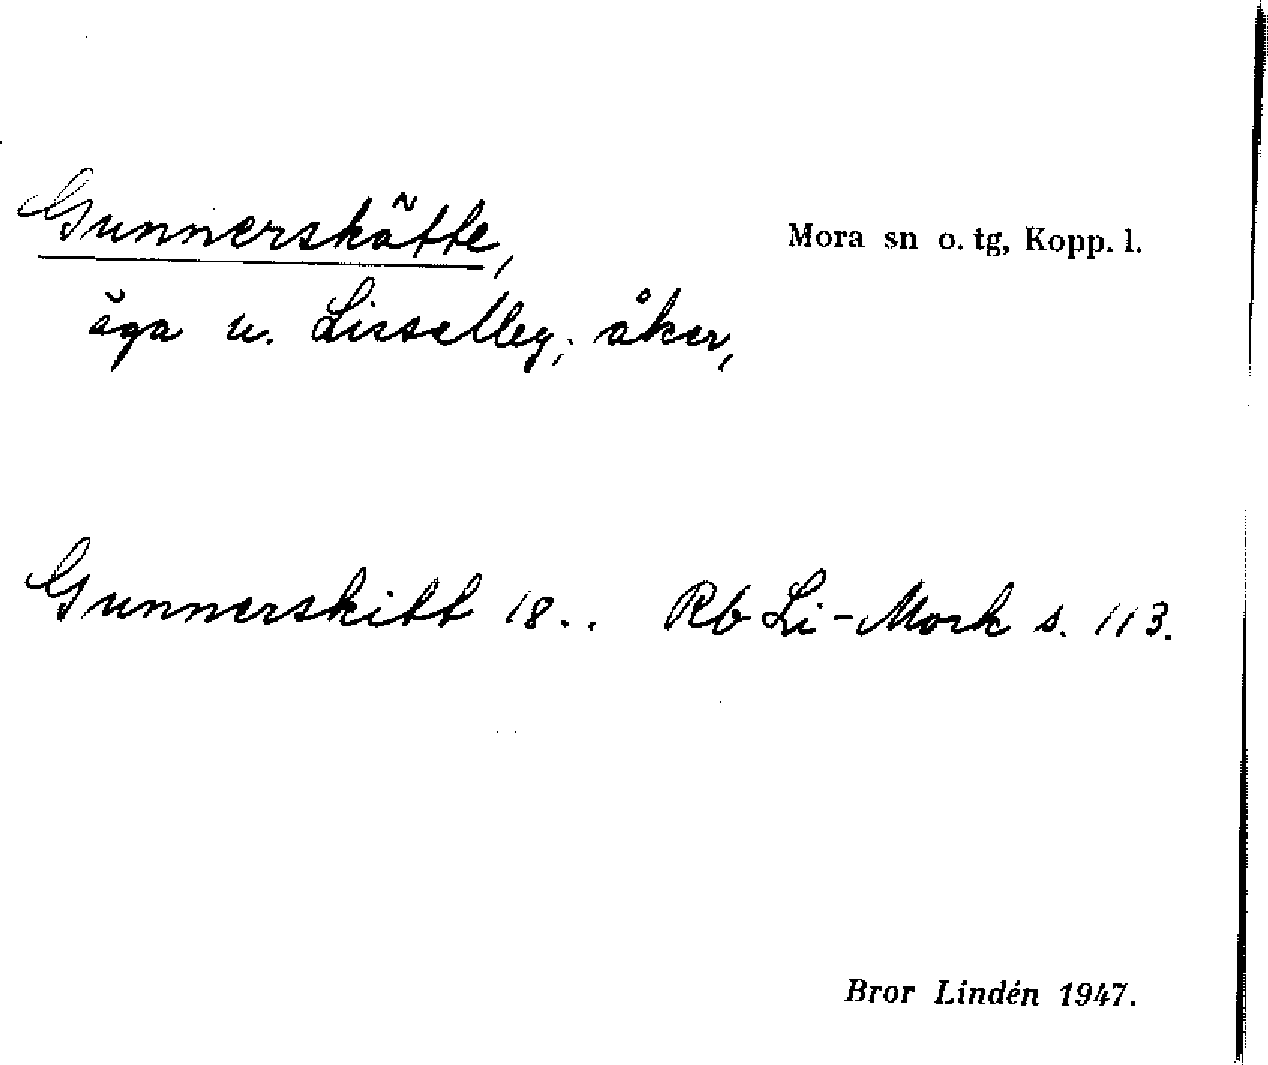 Gunnerskätte,
Mora sn o. tg, Kopp. l.
äga u. Lisselleg; åker,
Gunnerskitt 18.. Rb Li-Mork s. 113.
Bror Lindén 1947.